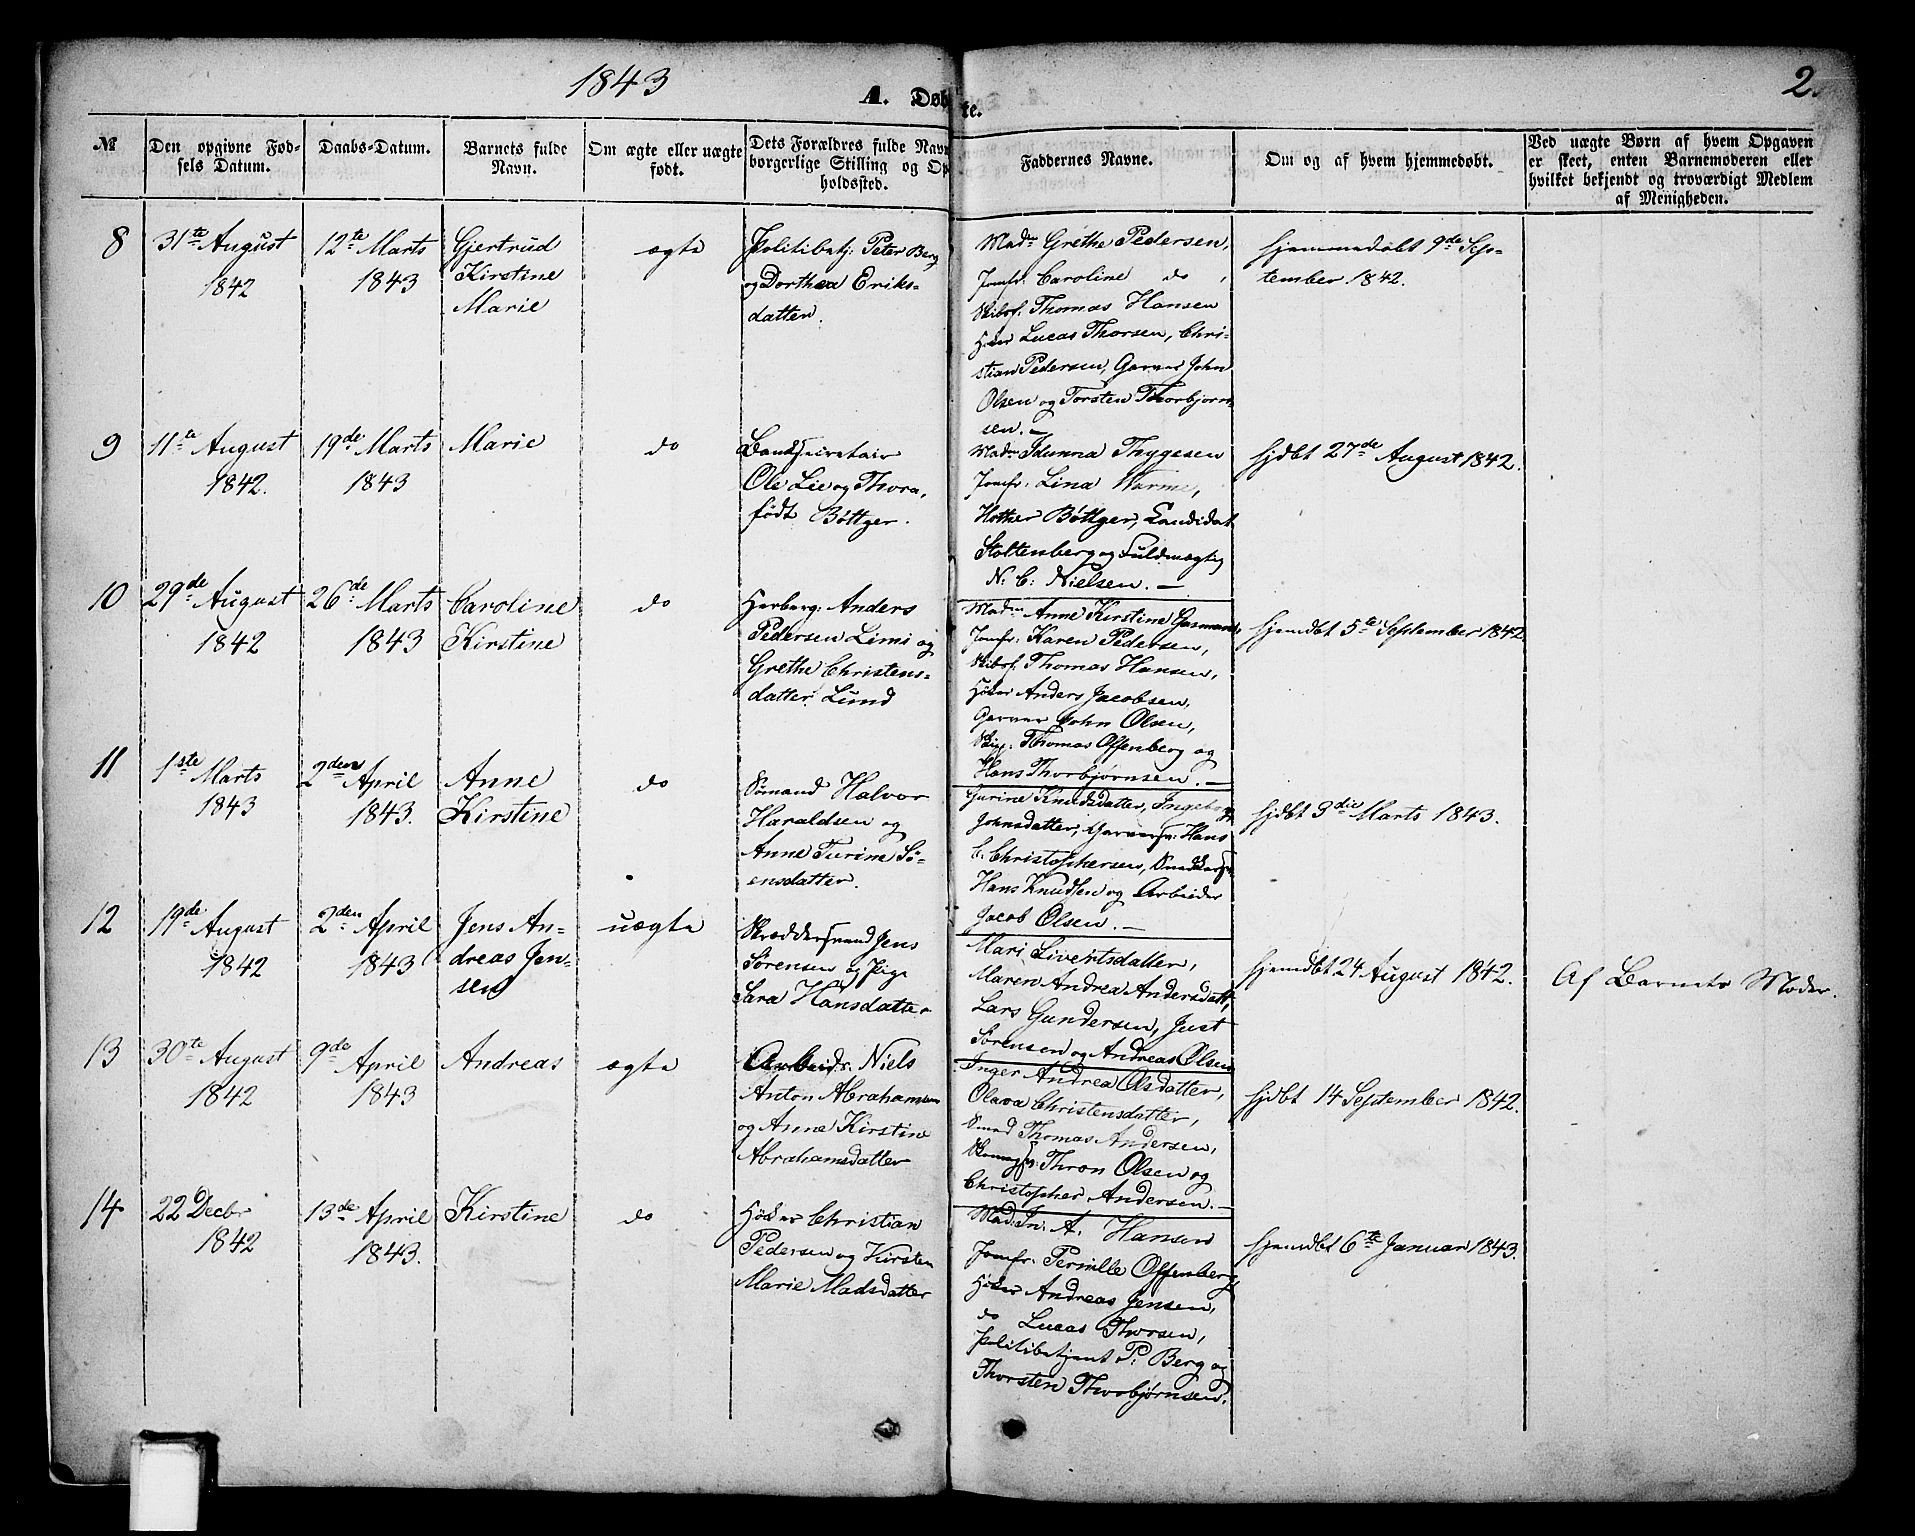 1843
A. Døbte.
2.
№
Den opgivne Fød-
sels Datum.
Daabs-Datum.
Barnets fulde
Navn.
Om ægte eller uægte
født.
Dets Forældres fulde Navn
borgerlige Stilling og Op
holdssted.
Faddernes Navne.
Om og af hvem hjemmedøbt.
Ved uægte Børn af hvem Opgaven
er skeet, enten Barnemoderen eller
hvilket bekjendt og troværdigt Medlem
af Menigheden.
8
31te August
1842
12te Marts
1843
Gjertrud
Kirstine
Marie
ægte
Politibetj: Peter Berg
og Dorthea Eriks-
datter.
Madm Grethe Pedersen,
Jomfr: Caroline do,
Skibsf: Thomas Hansen
Høker Lucas Thorsen, Chri-
stian Pedersen, Garver John
Olsen og Torsten Thorbjørn-
sen. —
hjemmedøbt 9de Sep-
tember 1842.
9
11te August
1842.
19de Marts
1843
Marie
do
Ole Lie og Thora,
født Bøttger.
Madm Idunna Thygesen
Jomfr: Lina
Hother Bøttger, Candidat
Stoltenberg og Fuldmægtig
N: C: Nielsen. —
hjdbt 27de August 1842.
10
29de August
1842
26de Marts
1843
Caroline
Kirstine
do
Herberg: Anders
Pedersen Limi og
Grethe Christens-
datter Lund
Madm Anne Kirstine
Jomfr: Karen Pedersen,
Skibsf: Thomas Hansen,
Høker Anders Jacobsen,
Garver John Olsen,
Thomas Offenberg og
Hans Thorbjørnsen. —
hjemdbt 5te September 1842
11
1ste Marts
1843
2den April
1843.
Anne
Kirstine
do
Sømand Halvor
Haraldsen og
Anne Turine Sø-
ensdatter.
Gurine Knudsdatter, Ingeborg
Johnsdatter, Garversv: Hans
C: Christophersen,
Hans Knudsen og Arbeider
Jacob Olsen. —
hjdbt 3die Marts 1843.
12
19de August
1842
2den April
1843
Jens An-
dreas Jen-
sen
uægte
Skræddersvend Jens
Sørensen og Pige
Sara Hansdatter
Mari Livertsdatter,
Maren Andrea Andersdatt,
Lars Gundersen, Just
Sørensen og Andreas Olsen
hjemdbt 24 August 1842.
Af Barnets Moder.
13
30te August
1842
9de April
1843
Andreas
ægte
Arbeids: Niels
Anton Abrahamsen
og Anne Kirstine
Abrahamsdatter
Inger Andrea Olsdatter,
Olava Christensdatter,
Smed Thomas Andersen,
Thron Olsen og
Christopher Andersen. —
hjdbt 14 September 1842.
14
22 Decbr
1842
13de April
1843.
Kirstine
do
Høker Christian
Pedersen og Kirsten
Marie Madsdatter
A. Hansen
Jomfr: Pernille Offenberg
Høker Andreas Jensen,
do Lucas Thorsen,
Politibetjent P: Berg og
Thorsten Thorbjørnsen.
hjemdbt 6te Januar 1843.